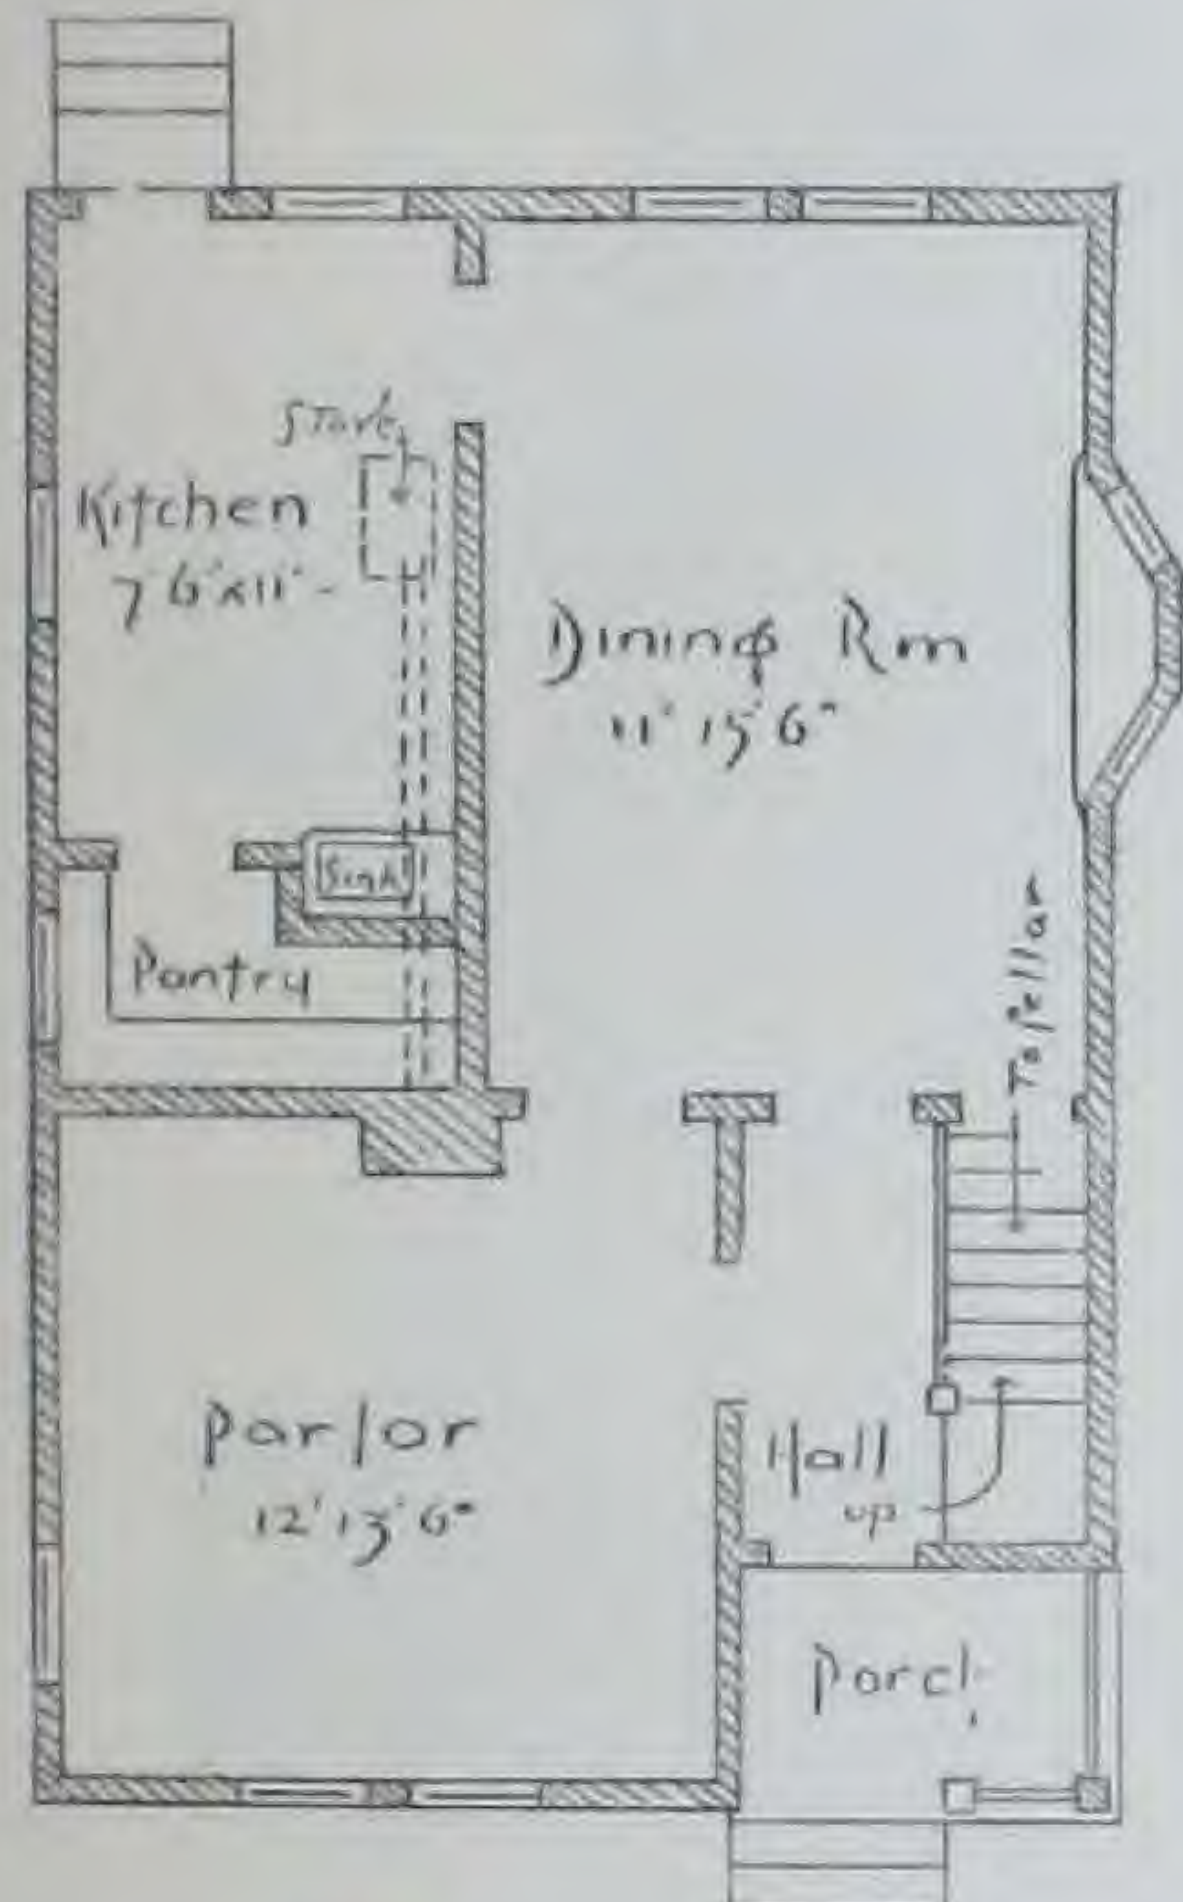 Stove
Kitchen
7'6"x11'-
Dining Rm
11' 15' 6"
Sink
Pantry
To Cellar
Parlor
12' 13' 6"
Hall
up
Porch